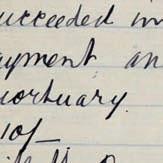 ucceeded in
ayment an
ortuary.
10/-